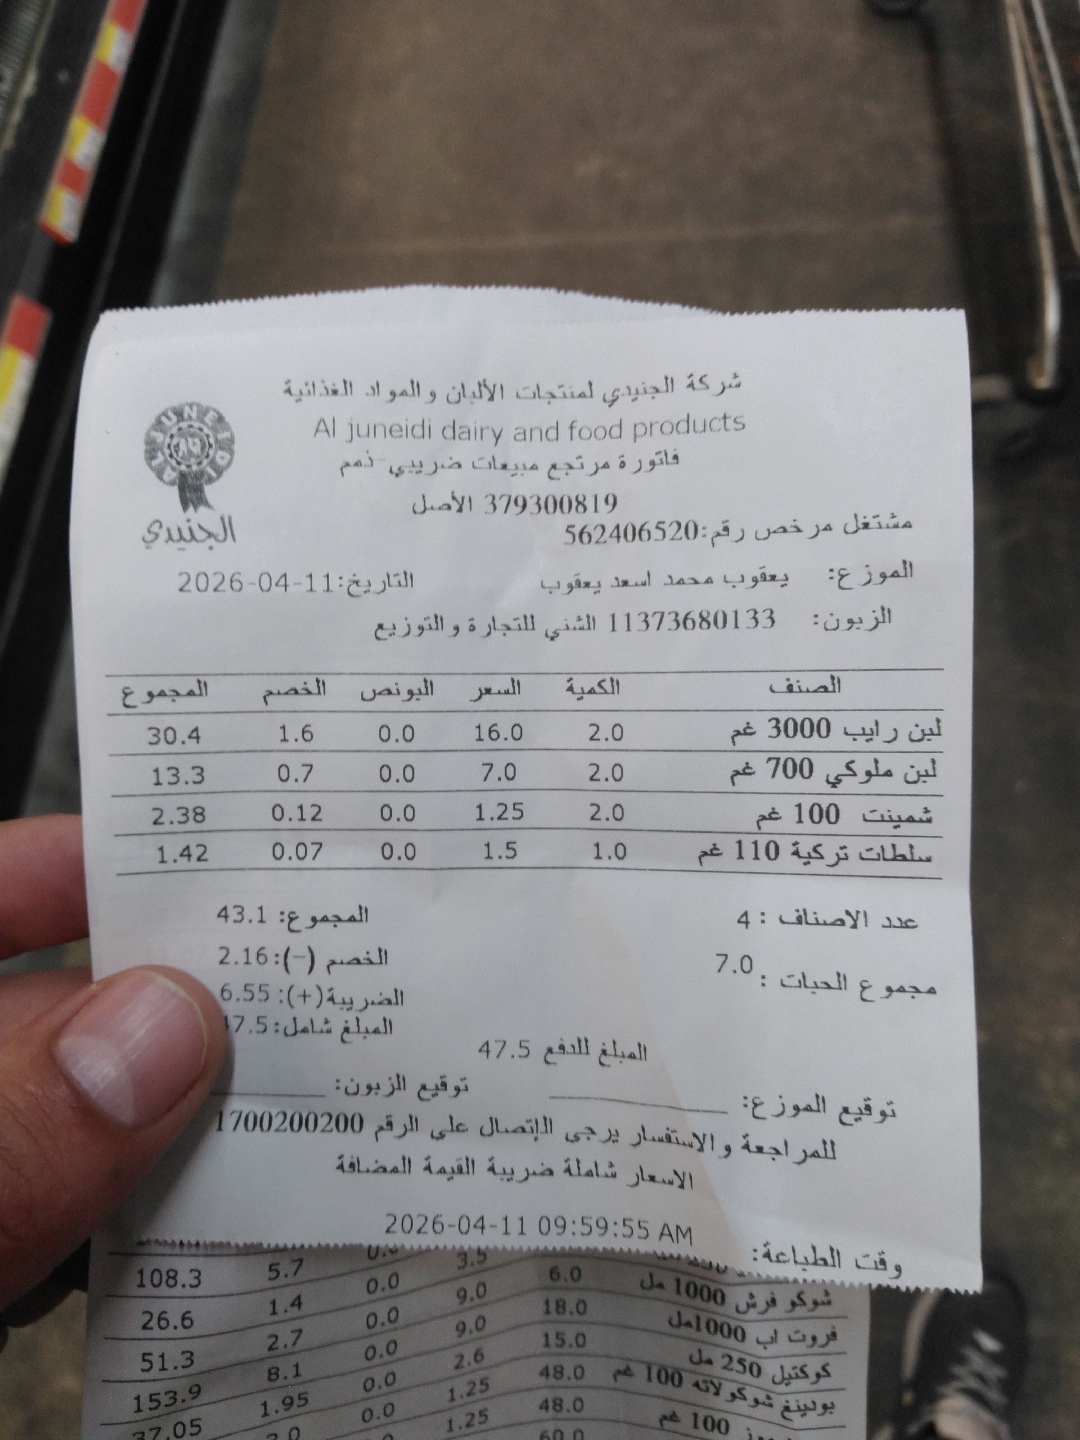 شركة الجنيدي لمنتجات الألبان والمواد الغذائية
Al juneidi dairy and food products
فاتورة مرتجع مبيعات ضريبي-ذمم
379300819 الأصل
الجنيدي
مشتغل مرخص رقم:562406520
الموزع: يعقوب محمد اسعد يعقوب التاريخ:2026-04-11
الزبون: 11373680133 الشني للتجارة والتوزيع
الصنف الكمية السعر البونص الخصم المجموع
لبن رايب 3000 غم 2.0 16.0 0.0 1.6 30.4
لبن ملوكي 700 غم 2.0 7.0 0.0 0.7 13.3
شمينت 100 غم 2.0 1.25 0.0 0.12 2.38
سلطات تركية 110 غم 1.0 1.5 0.0 0.07 1.42
عدد الاصناف : 4 المجموع: 43.1
مجموع الحبات : 7.0 الخصم (-):2.16
الضريبة(+): 6.55
المبلغ شامل:47.5
المبلغ للدفع 47.5
توقيع الموزع: توقيع الزبون:
للمراجعة والاستفسار يرجى الإتصال على الرقم 1700200200
الاسعار شاملة ضريبة القيمة المضافة
وقت الطباعة: 2026-04-11 09:59:55 AM
3.5 0.0 5.7 108.3
شوكو فرش 1000 مل 6.0 9.0 0.0 1.4 26.6
فروت اب 1000مل 18.0 9.0 0.0 2.7 51.3
كوكتيل 250 مل 15.0 2.6 0.0 8.1 153.9
بودينغ شوكولاته 100 غم 48.0 1.25 0.0 1.95 37.05
100 غم 48.0 1.25
60.0